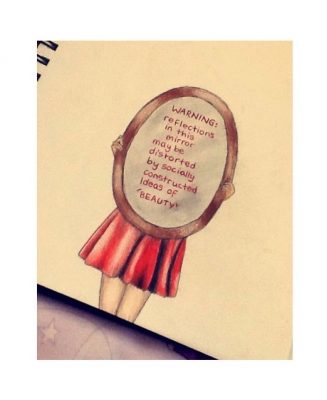 WARNING:
reflections
in this
mirror
may be
distorted
by socially
constructed
Ideas of
"BEAUTY"